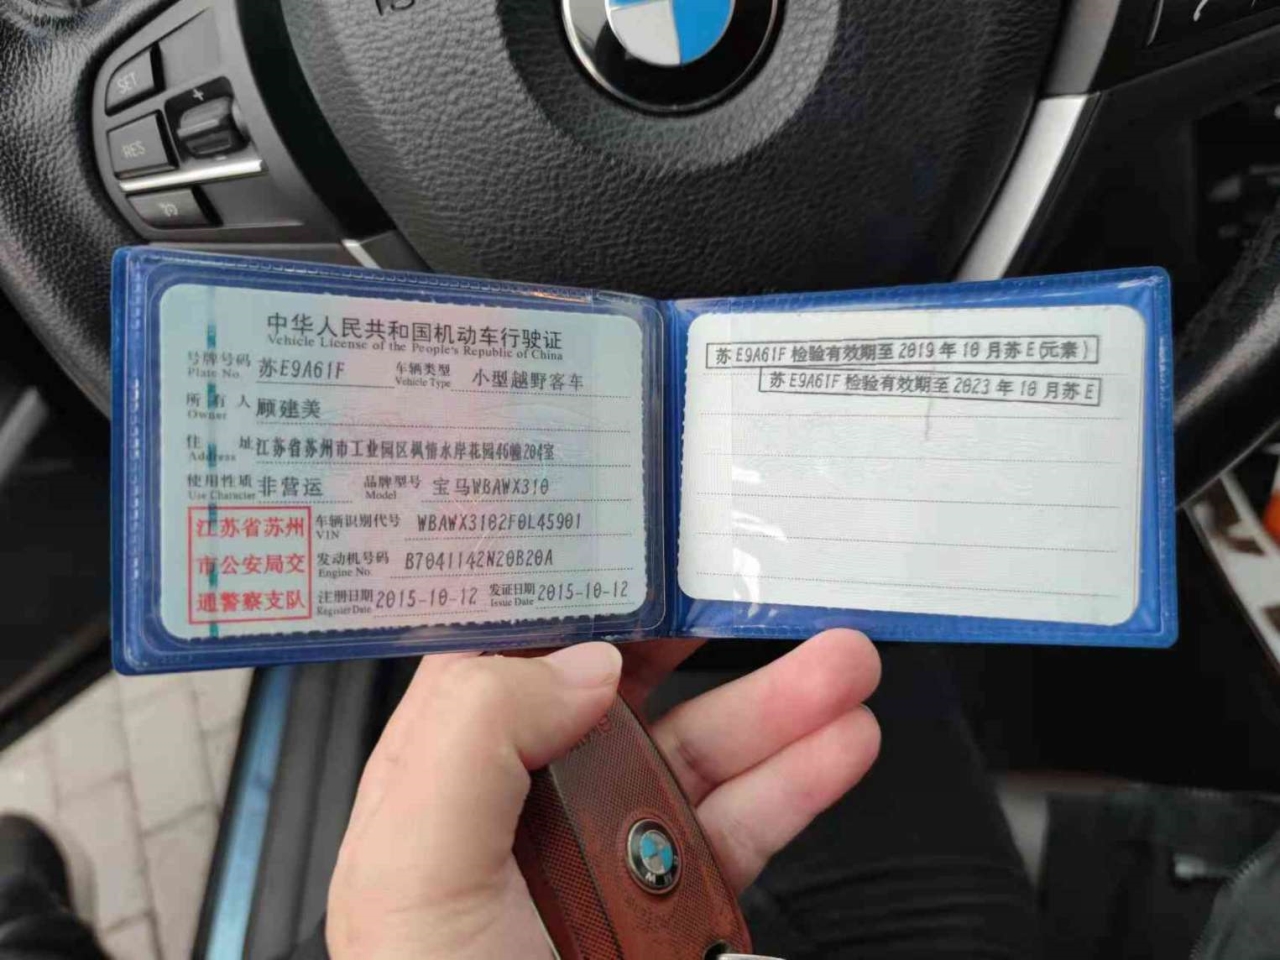 SET
+
RES
中华人民共和国机动车行驶证
Vehicle License of the People's Republic of China
号牌号码 苏E9A61F 车辆类型 小型越野客车
Plate No. Vehicle Type
所有人 顾建美
Owner
住址 江苏省苏州市工业园区枫情水岸花园46幢204室
Address
使用性质 非营运 品牌型号 宝马WBAWX310
Use Character Model
江苏省苏州
市公安局交
通警察支队
车辆识别代号 WBAWX3102F0L45901
VIN
发动机号码 B7041142N20B20A
Engine No.
注册日期 2015-10-12 发证日期 2015-10-12
Register Date Issue Date
苏E9A61F检验有效期至2019年10月苏E(元素)
苏E9A61F检验有效期至2023年10月苏E